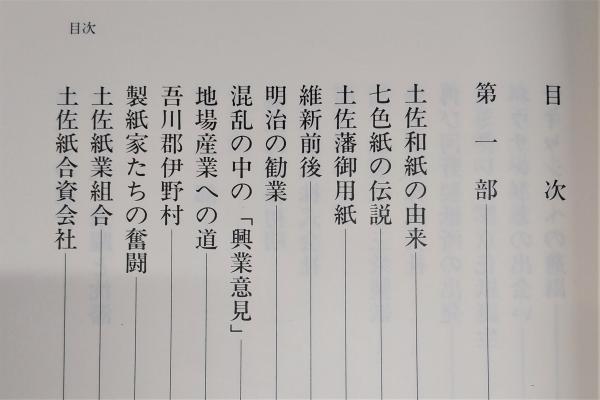 目次
目次
第一部
土佐和紙の由来
七色紙の伝説
土佐藩御用紙
維新前後
明治の勧業
混乱の中の「興業意見」
地場産業への道
吾川郡伊野村
製紙家たちの奮闘
土佐紙業組合
土佐紙合資会社